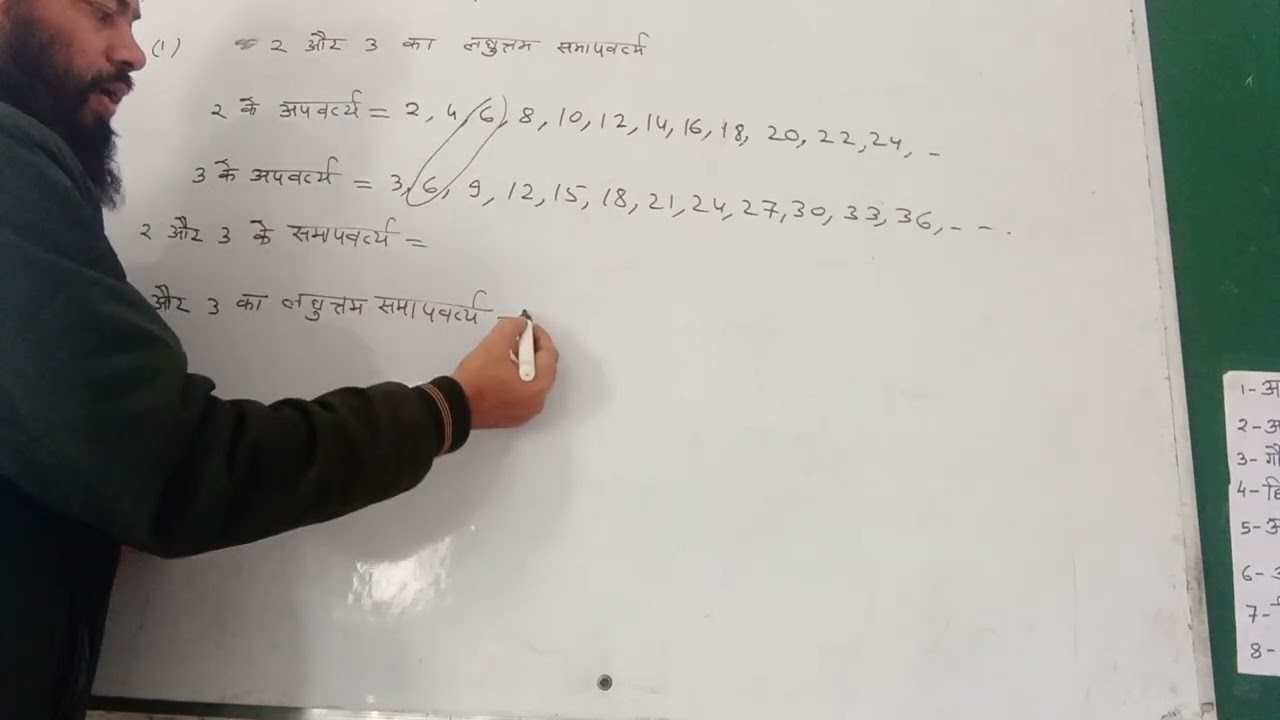 (1) 2 और 3 का लघुत्तम समापवर्त्य
2 के अपवर्त्य = 2, 4, 6, 8, 10, 12, 14, 16, 18, 20, 22, 24, -
3 के अपवर्त्य = 3, 6, 9, 12, 15, 18, 21, 24, 27, 30, 33, 36, - - .
2 और 3 के समापवर्त्य =
और 3 का लघुत्तम समापवर्त्य =
1-
2-
3-
4-
5-
6-
7-
8-